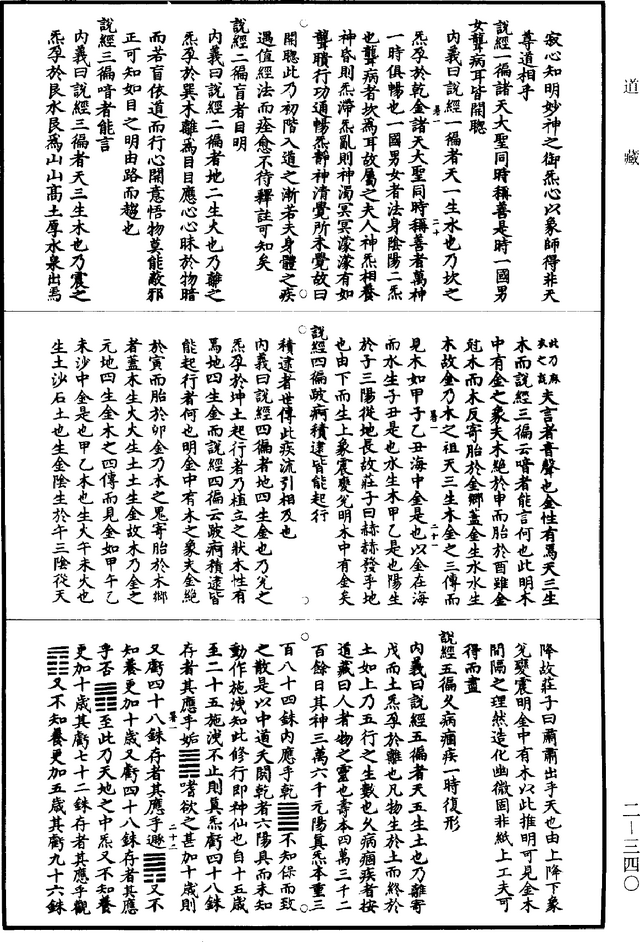 道藏
寂心知明妙神之御炁心以象師得非天
尊道相乎
說經一徧諸天大聖同時稱善是時一國男
女聾病耳皆開聰
內義曰說經一徧者天一生水也乃坎之
炁孕於乾金諸天大聖同時稱善者萬神
一時俱暢也一國男女者法身陰陽二炁
也聾病者坎為耳故屬之夫人神炁相養
神昏則炁滯炁亂則神濁冥冥濛濛有如
聾聵行功通暢炁靜神清覺所未覺故曰
開聰此乃初階入道之漸若夫身體之疾
遇值經法而痊愈不待釋註可知矣
說經二徧盲者目明
內義曰說經二徧者地二生火也乃離之
炁孕於巽木離為目目應心心昧於物暗
而若盲依道而行心開意悟物莫能蔽邪
正可知如目之明由路而趨也
說經三徧喑者能言
內義曰說經三徧者天三生木也乃震之
炁孕於艮水艮為山山高土厚水泉出焉
此乃麻衣之說
夫言者音聲也金性有焉天三生
木而說經三徧云喑者能言何也此明木
中有金之象夫木絕於申而胎於酉雖金
尅木而木反寄胎於金鄉蓋金生水水生
木故金乃木之祖天三生木金之三傳而
見木如甲子乙丑海中金是也以金在海
而水生子丑是也水生木甲乙是也陽生
於子三陽從地長故莊子曰赫赫發乎地
也由下而生上象震變兊明木中有金矣
說經四徧跛痾積逮皆能起行
積逮者世傳此疾流引相及也
內義曰說經四徧者地四生金也乃兊之
炁孕於坤土起行者乃植立之狀木性有
焉地四生金而說經四徧云跛痾積逮皆
能起行者何也明金中有木之象夫金絕
於寅而胎於卯金乃木之鬼寄胎於木鄉
者蓋木生火火生土土生金故木乃金之
元地四生金木之四傳而見金如甲午乙
未沙中金是也甲乙木也生火午未火也
生土沙石土也生金陰生於午三陰從天
降故莊子曰肅肅出乎天也由上降下象
兊變震明金中有木以此推明可見金木
間隔之理然造化幽微固非紙上工夫可
得而盡
說經五徧久病痼疾一時復形
內義曰說經五徧者天五生土也乃離寄
戊而土炁孕於離也凡物生於土而終於
土如上乃五行之生數也久病痼疾者按
道藏曰人者物之靈也壽本四萬三千二
百餘日其神三萬六千元陽真炁本重三
百八十四銖內應乎乾䷀不知保而致
之散是以中道夭閼乾者六陽具而未知
動作施洩知此修行即神仙也自十五歲
至二十五施洩不止則真炁虧四十八銖
存者其應乎姤䷫嗜欲之甚加十歲則
又虧四十八銖存者其應乎遯䷠又不
知養更加十歲又虧四十八銖存者其應
乎否䷋至此乃天地之中炁又不知養
更加十歲其虧七十二銖存者其應乎觀
䷓又不知養更加五歲其虧九十六銖
二—三四〇